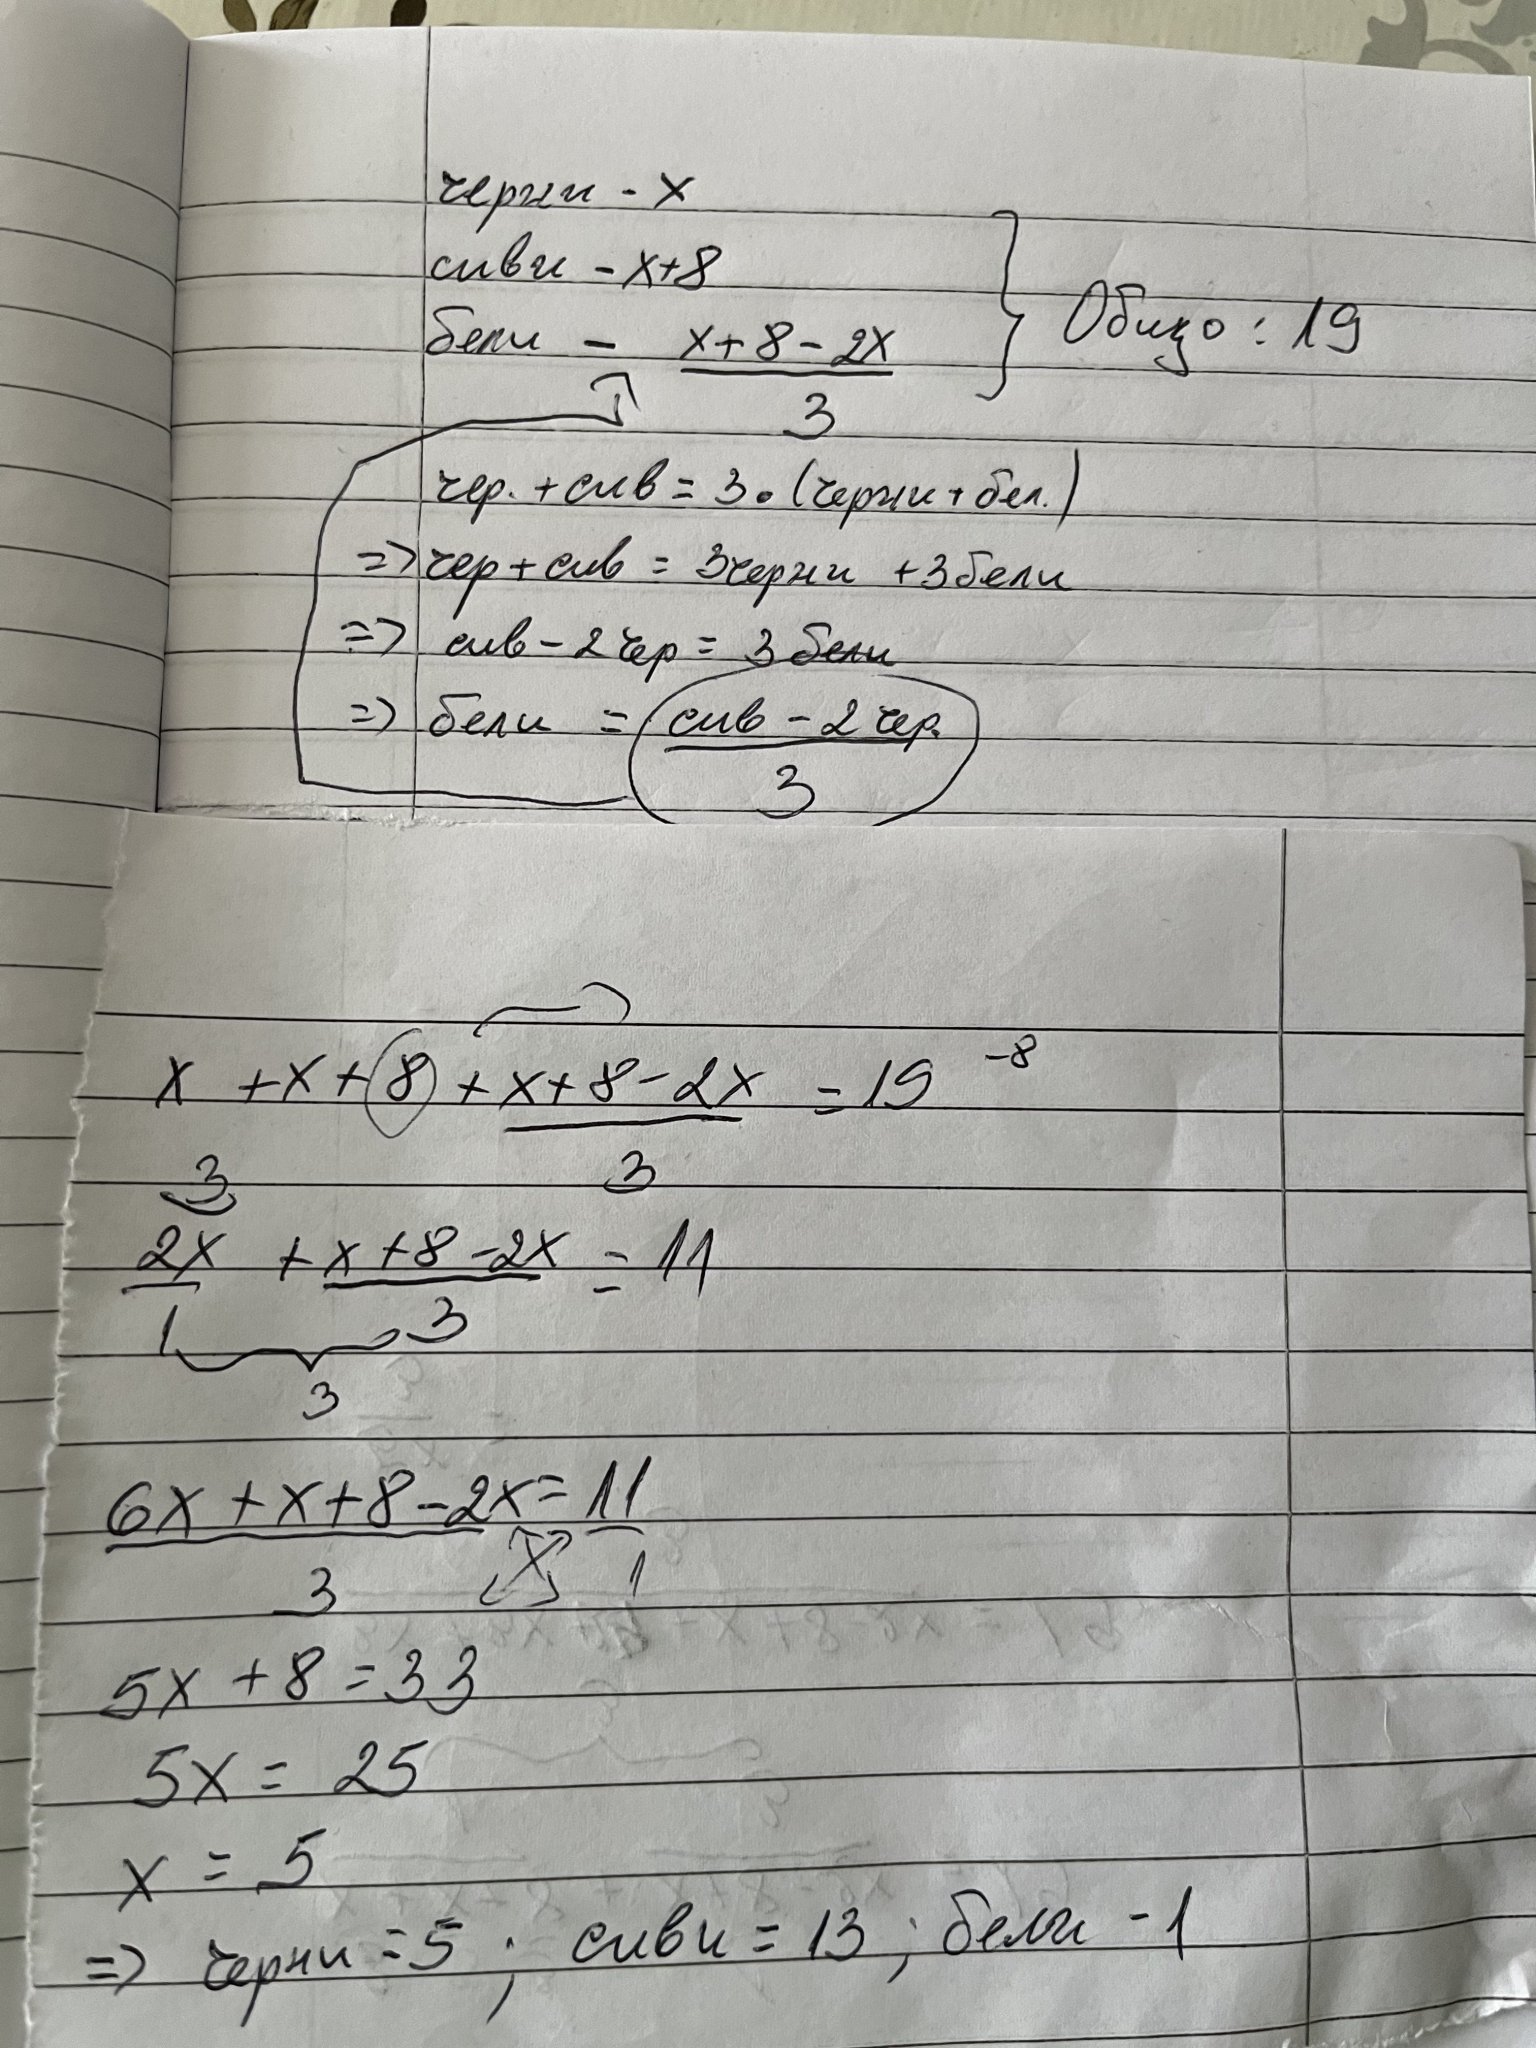 черни - x
сиви - x+8
бели - x+8-2x
3
Общо: 19
чер. + сив = 3.(черни + бел.)
=> чер + сив = 3черни + 3бели
=> сив - 2чер = 3бели
=> бели = сив - 2чер.
3
x + x + 8 + x+8-2x = 19 -8
3
3
2x + x+8-2x = 11
1 3
3
6x + x + 8 - 2x = 11
3 1
5x + 8 = 33
5x = 25
x = 5
=> черни = 5; сиви = 13; бели - 1